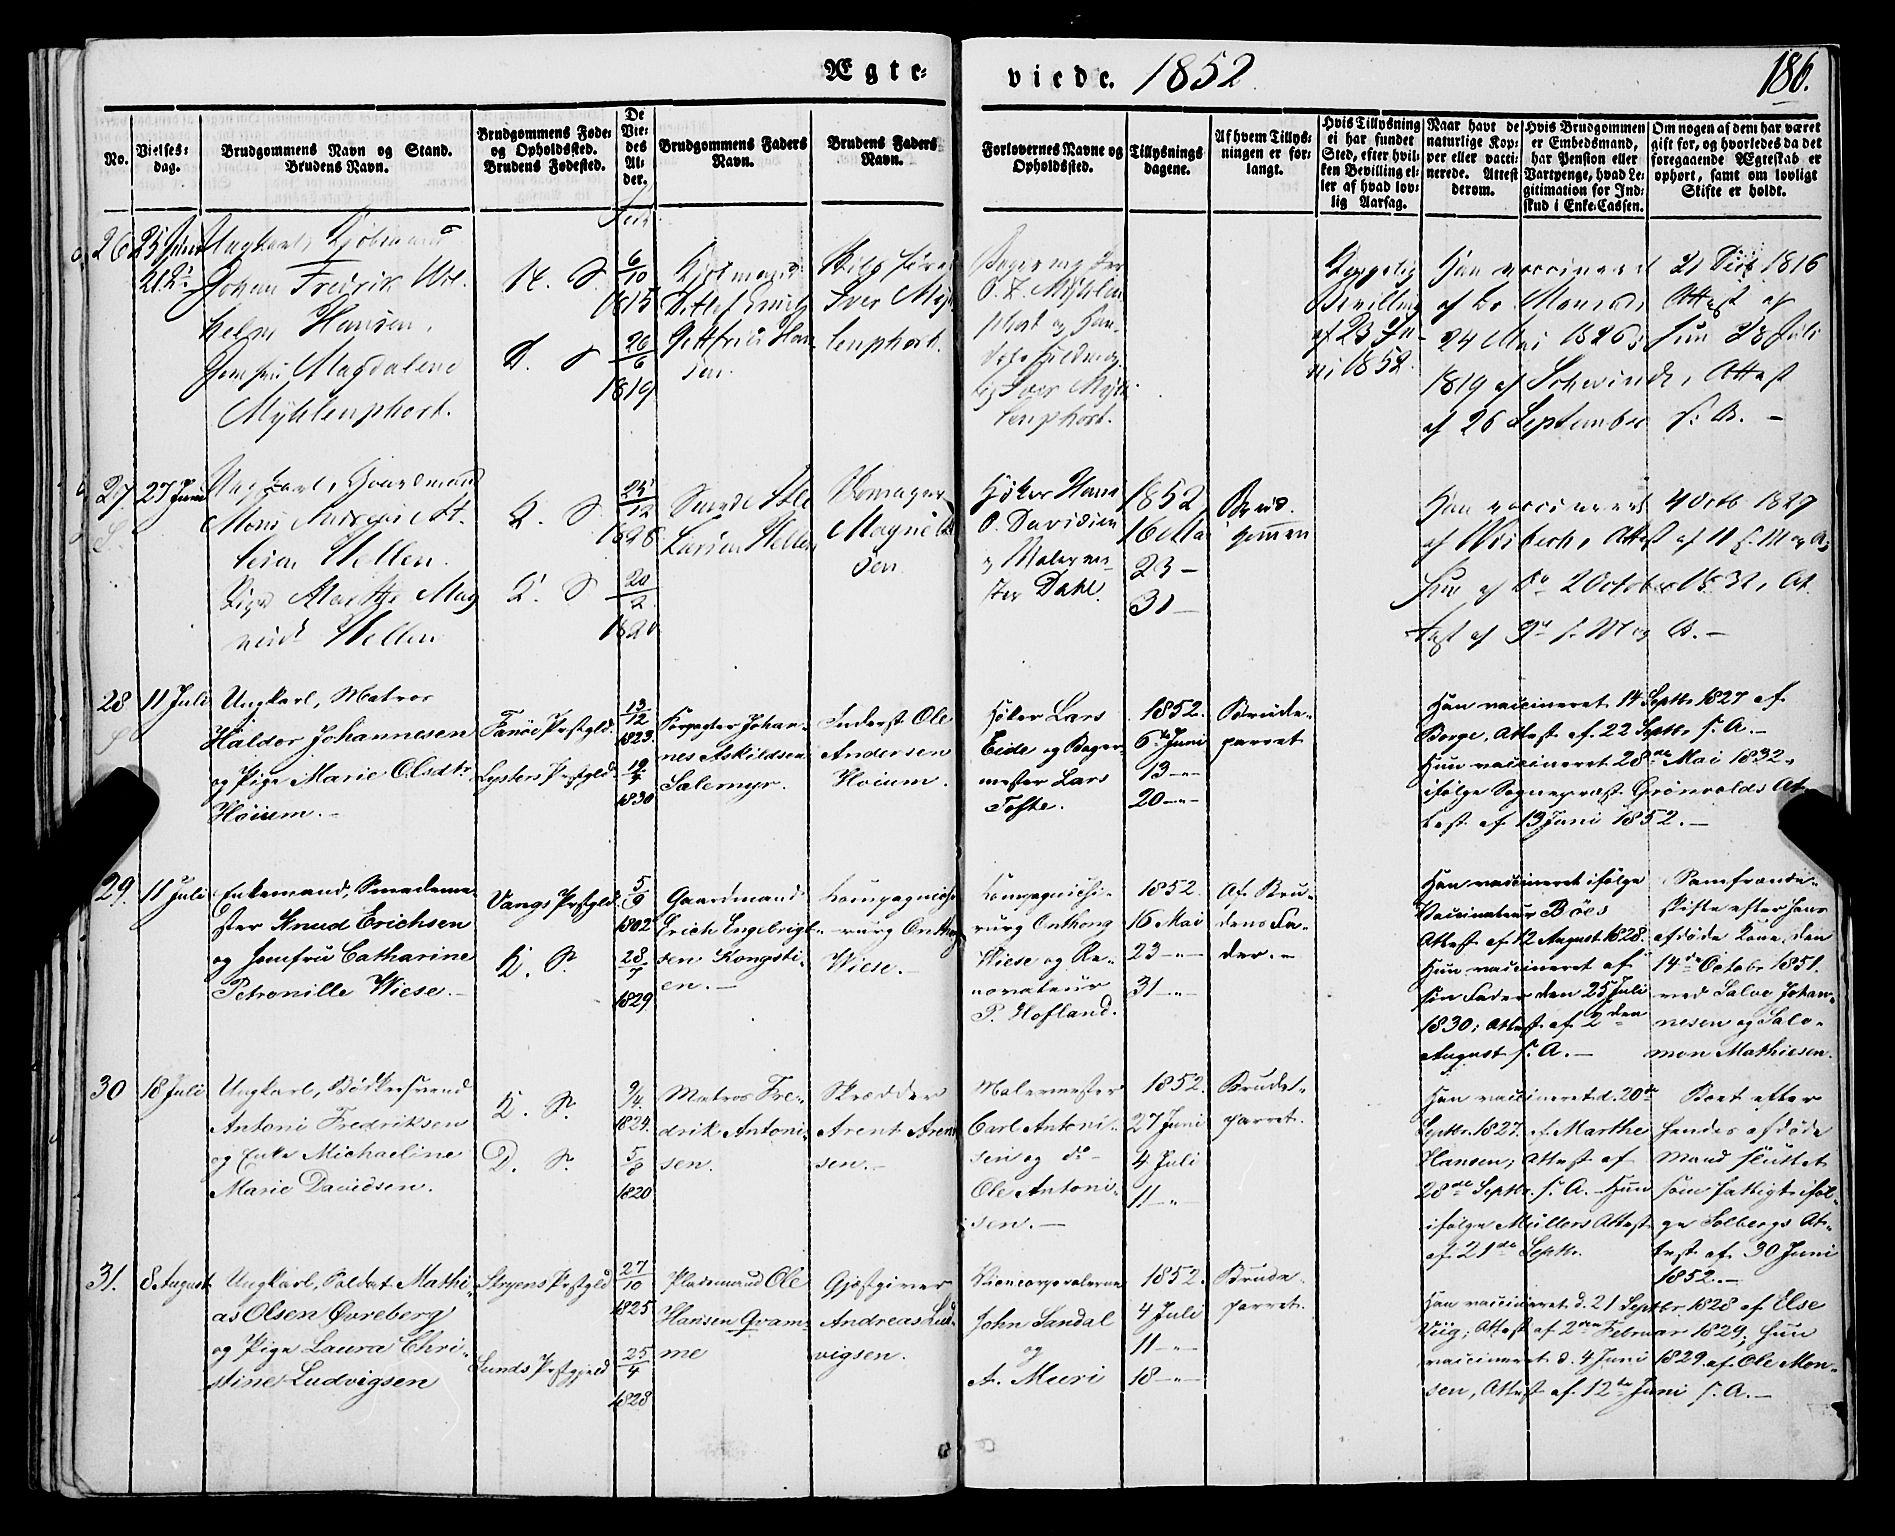 Ægte-
viede. 1852
186.
No.
Vielses-
dag.
Brudgommens Navn og Stand.
Brudens Navn.
Brudgommens Føde-
og Opholdssted.
Brudens Fødested.
De
Vie-
des
Al-
der.
Brudgommens Faders
Navn.
Brudens Faders
Navn.
Forlovernes Navne og
Opholdssted.
Tillysnings
dagene.
Af hvem Tillys-
ningen er for-
langt.
Hvis Tillysning
ei har fundet
Sted, efter hvil-
ken Bevilling el-
ler af hvad lov-
lig Aarsag.
Naar havt de
naturlige Kop-
per eller vacci-
nerede. Attest
derom.
Hvis Brudgommen
er Embedsmand,
har Pension eller
Vartpenge, hvad Le-
gitimation for Ind-
skud i Enke-Cassen.
Om nogen af dem har været
gift før, og hvorledes da det
foregaaende Ægteskab er
ophørt, samt om lovligt
Skifte er holdt.
26
25 Juni
Ungkarl, Kjøbmand
Johan Fredrik Wil-
helm Hansen,
Jomfru Magdalene
Myhlenphort.
6/10
1815
26/6
1819
Kjøbmand
Hansen.
Iver Myh-
lenphort.
Myhlen-
phort og
Iver Myh-
lenphort.
Kongelig
Bevilling
af 23 Ju-
ni 1852.
Han vaccineret 21 1816
af Attest af
24 Mai 1826; hun 28 Juli
1819 af Schwindt, Attest
af 26 September s. A. –
27
27 Juni
Ungkarl,
Mons
Hellen.
Pige Marthe Mag
Hellen
20/2
Larsen Hellen
Magne
sen
Høker Hans
O. Davidsen
og Malerme-
ster Dahl.
1852
16 Mai
23 –
31 –
Brud-
gommen
Han vaccineret 4 Octb 1827
af Wisbech, Attest af 11 s. M og A;
hun af Do 2 October 1832, At-
test af s. M og A. –
28
11 Juli
Ungkarl, Matros
Haldor Johannesen
og Pige Marie Olsdtr
Høium. –
Fanøe Prstgld.
Lysters Prstgld.
13/12
1823.
19/7
1830
Forpagter Johan-
nes Askildsen
Salemyr.
Inderst Ole
Andersen
Høium.
Høker Lars
Eide og Bager-
mester Lars
Tofte.
1852.
6te Juni
13 –"–
20 –"–
Brude-
parret
Han vaccineret 14 Septbr 1827 af
Borge, Attest af 22 Septbr s. A. –
Hun vaccineret 28de Mai 1832,
ifølge Sognepræst Grønvolds At-
test af 13 Juni 1852. –
29.
11 Juli
Enkemand, Smedeme-
ster Knud Erichsen
og Jomfru Catharine
Petronille Wiese. –
Vangs Prstgld.
D. S.
5/9
1802
28/7
1829
Gaardmand
Erich Engebrigt-
sen Kongsti-
en. –
Kompagniechi-
rurg Onthong
Wiese. –
Kompagniechi-
rurg Onthong
Wiese og Re-
novateur
P. Hofland.
1852.
16 Mai
23 –"–
31 –"–
Af Bru-
dens Fa-
der. –
Han vaccineret ifølge
Vaccinateur Böes
Attest af 12 August 1828.
Hun vaccineret af
sin Fader den 25 Juli
1830; Attest af 2den
August s. A. –
Samfrænde-
skifte efter hans
afdøde Kone, den
14de Octobr 1851.
ved Salve Johan-
nesen og Salo-
mon Mathiesen.
30
18 Juli
Ungkarl, Bødkersvend
Antoni Fredriksen
og Enke Michaeline
Marie Davidsen.
D. S.
D. S.
9/4.
1824.
5/8
1820
Matros Fre-
drik Antoni-
sen.
Skrædder
Arent Arent-
sen. –
Malermester
Carl Antoni-
sen og do
Ole Antoni-
sen. –
1852.
27 Juni
4 Juli
11 –"–
Brude-
parret.
Han vaccineret d. 20de
Septbr 1827. af Marthe
Hansen, Attest af
28de Septbr. s. A. – Hun
ifølge Müllers Attest
af 21de Septbr.
Boet efter
hendes afdøde
Mand sluttet
som fattigt iføl-
ge Solbergs At-
test af 30 Juni
1852. –
31.
8 August
Ungkarl, Soldat Mathi-
as Olsen Øvreberg
og Pige Laura Chri-
stine Ludvigsen
Stryens Prstgld
Sunds Prstgjeld
27/10
1825
25/4
1828
Pladsmand Ole
Hansen Qvam-
me
Gjæstgiver
Andreas Lud-
vigsen.
Viceorporalerne
John Sandal
og
A. Muri
1852.
4 Juli
11 –"–
18 –"–
Brude-
parret.
Han vaccineret d. 21 Septbr 1828 af Else
Viig; Attest af 2den Februar 1829; hun
vaccineret d. 4 Juni 1829 af Ole Mon-
sen, Attest af 12te Juni s. A. –